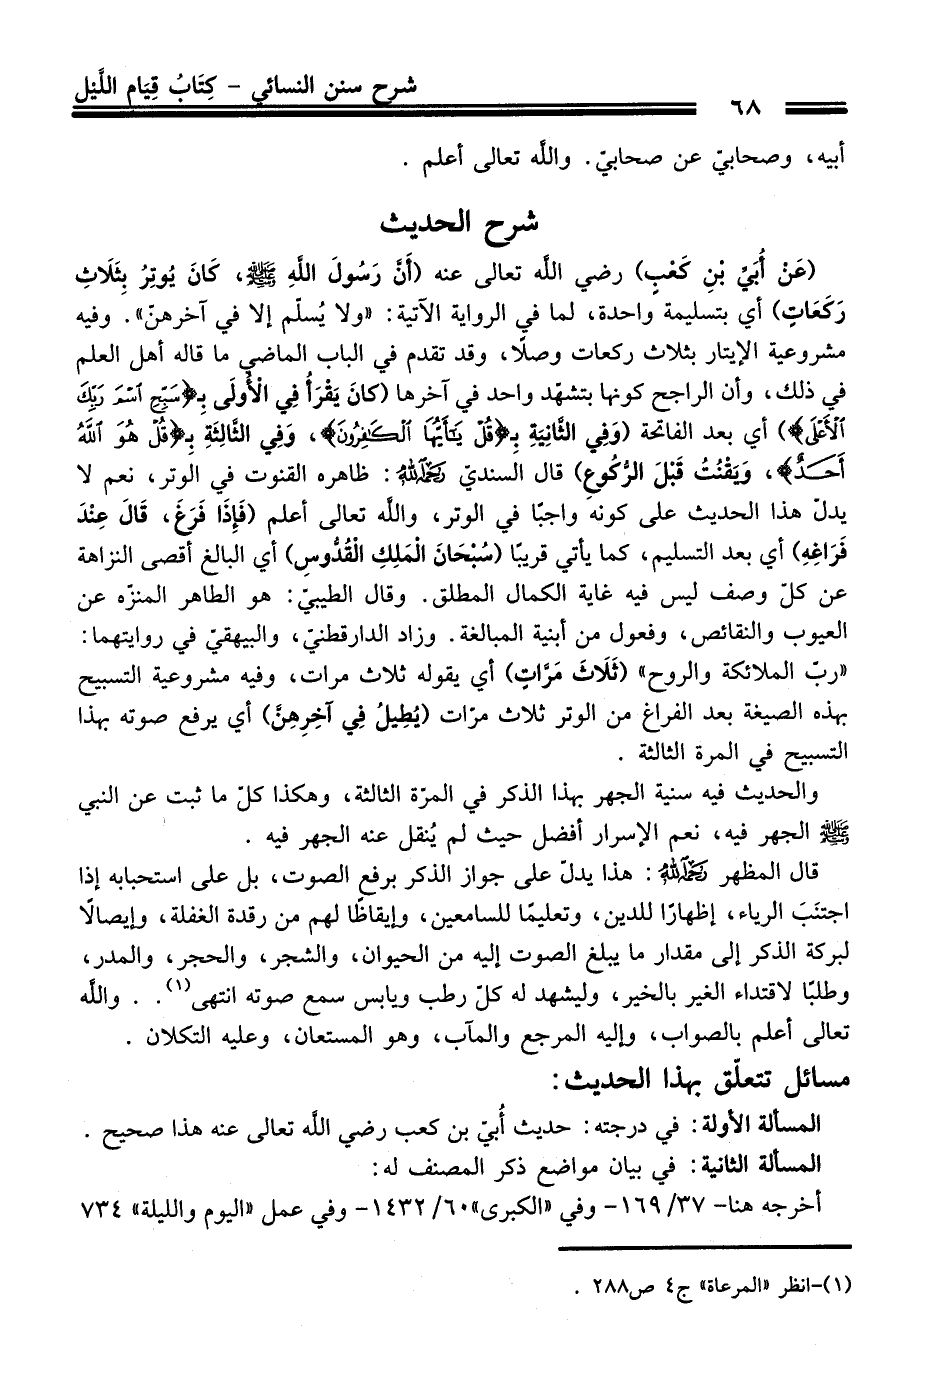 شرح سنن النسائي - كِتَابُ قِيَام اللَّيْل
٦٨
أبيه، وصحابيّ عن صحابيّ. واللَّه تعالى أعلم .
شرح الحديث
(عَنْ أُبَيِّ بْنِ كَعْبٍ) رضي اللَّه تعالى عنه (أَنَّ رَسُولَ اللَّهِ ﷺ، كَانَ يُوتِرُ بِثَلَاثِ
رَكَعَاتٍ) أي بتسليمة واحدة، لما في الرواية الآتية: «ولا يُسلّم إلا في آخرهنّ». وفيه
مشروعية الإيتار بثلاث ركعات وصلًا، وقد تقدم في الباب الماضي ما قاله أهل العلم
في ذلك، وأن الراجح كونها بتشهّد واحد في آخرها (كانَ يَقْرَأُ فِي الْأُولَى بِـ﴿سَبِّحِ ٱسْمَ رَبِّكَ
ٱلْأَعْلَى﴾) أي بعد الفاتحة (وَفِي الثَّانِيَةِ بِـ﴿قُلْ يَٰٓأَيُّهَا ٱلْكَٰفِرُونَ﴾، وَفِي الثَّالِثَةِ بِـ﴿قُلْ هُوَ ٱللَّهُ
أَحَدٌ﴾، وَيَقْنُتُ قَبْلَ الرُّكُوعِ) قال السنديّ رحمه الله: ظاهره القنوت في الوتر، نعم لا
يدلّ هذا الحديث على كونه واجبًا في الوتر، واللَّه تعالى أعلم (فَإِذَا فَرَغَ، قَالَ عِنْدَ
فَرَاغِهِ) أي بعد التسليم، كما يأتي قريبًا (سُبْحَانَ الْمَلِكِ الْقُدُّوسِ) أي البالغ أقصى النزاهة
عن كلّ وصف ليس فيه غاية الكمال المطلق. وقال الطيبيّ: هو الطاهر المنزّه عن
العيوب والنقائص، وفعول من أبنية المبالغة. وزاد الدارقطنيّ، والبيهقيّ في روايتهما:
«ربّ الملائكة والروح» (ثَلَاثَ مَرَّاتٍ) أي يقوله ثلاث مرات، وفيه مشروعية التسبيح
بهذه الصيغة بعد الفراغ من الوتر ثلاث مرّات (يُطِيلُ فِي آخِرِهِنَّ) أي يرفع صوته بهذا
التسبيح في المرة الثالثة .
والحديث فيه سنية الجهر بهذا الذكر في المرّة الثالثة، وهكذا كلّ ما ثبت عن النبي
ﷺ الجهر فيه، نعم الإسرار أفضل حيث لم يُنقل عنه الجهر فيه .
قال المظهر رحمه الله: هذا يدلّ على جواز الذكر برفع الصوت، بل على استحبابه إذا
اجتنَبَ الرياء، إظهارًا للدين، وتعليمًا للسامعين، وإيقاظًا لهم من رقدة الغفلة، وإيصالًا
لبركة الذكر إلى مقدار ما يبلغ الصوت إليه من الحيوان، والشجر، والحجر، والمدر،
وطلبًا لاقتداء الغير بالخير، وليشهد له كلّ رطب ويابس سمع صوته انتهى(١). . واللَّه
تعالى أعلم بالصواب، وإليه المرجع والمآب، وهو المستعان، وعليه التكلان .
مسائل تتعلّق بهذا الحديث:
المسألة الأولة: في درجته: حديث أُبيّ بن كعب رضي اللَّه تعالى عنه هذا صحيح .
المسألة الثانية: في بيان مواضع ذكر المصنف له:
أخرجه هنا- ١٦٩/٣٧- وفي «الكبرى»١٤٣٢/٦٠- وفي عمل «اليوم والليلة» ٧٣٤
(١)-انظر «المرعاة» ج٤ ص٢٨٨ .